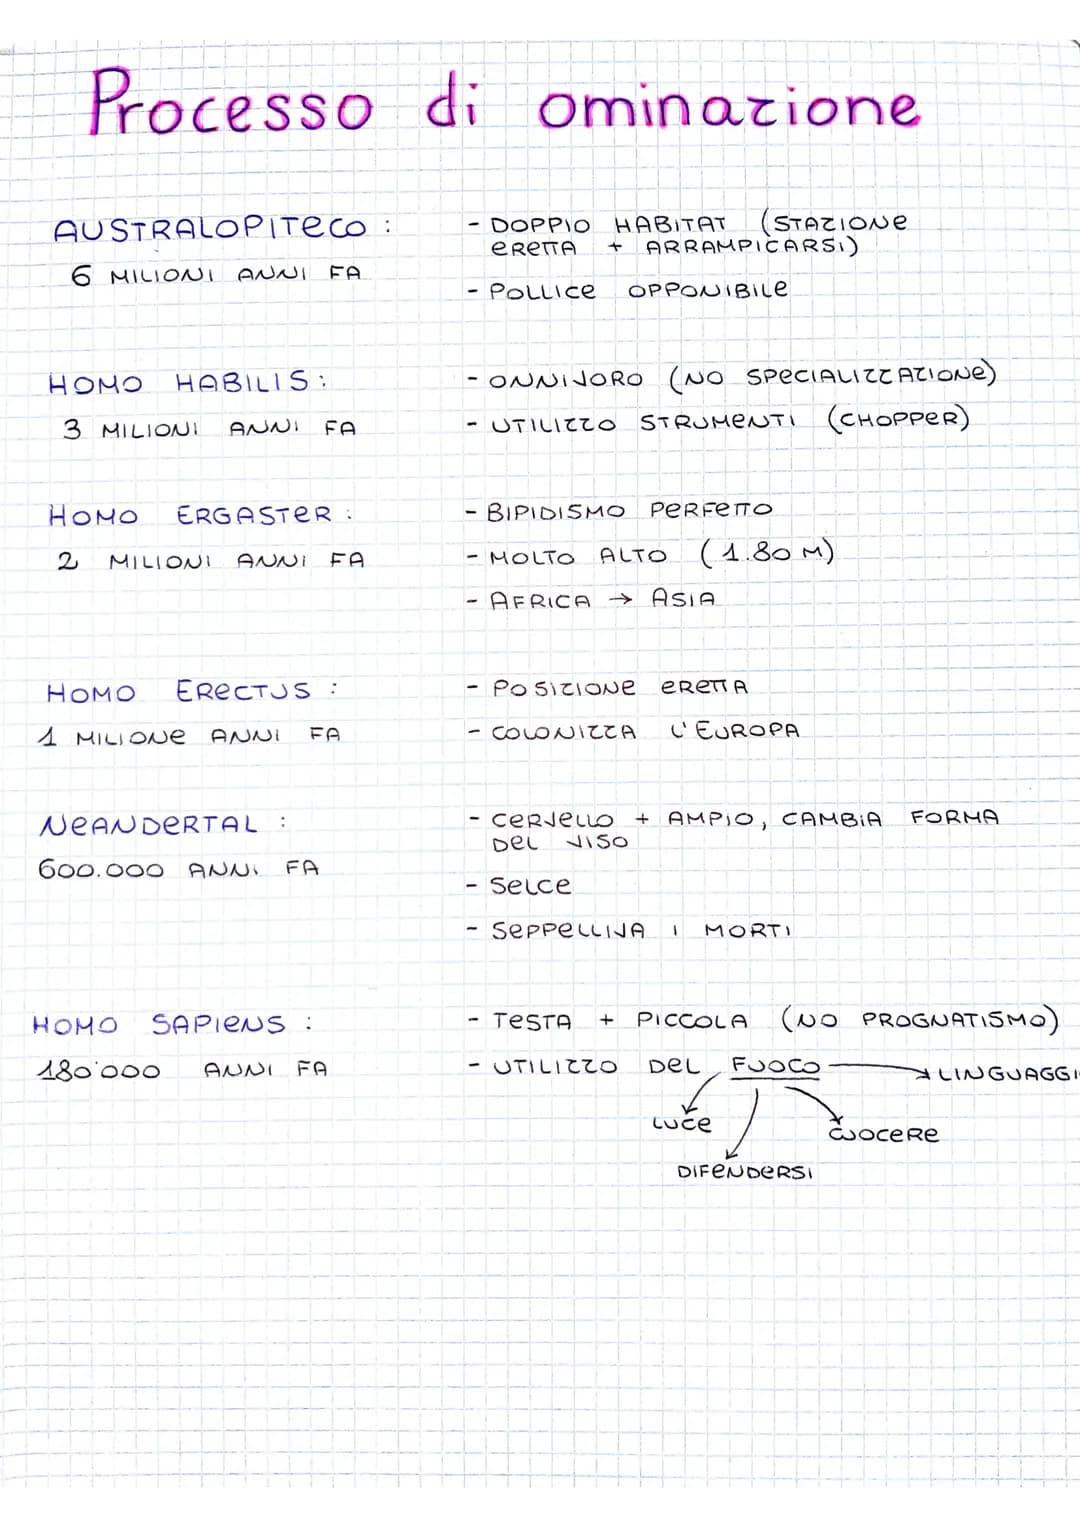 Processo di ominazione
AUSTRALOPITECO :
6 MILIONI ANNI FA
- DOPPIO HABITAT (STAZIONE
ERETTA + ARRAMPICARSI)
- POLLICE OPPONIBILE
HOMO HABILIS :
3 MILIONI ANNI FA
- ONNIVORO (NO SPECIALIZZAZIONE)
- UTILIZZO STRUMENTI (CHOPPER)
HOMO ERGASTER :
2 MILIONI ANNI FA
- BIPIDISMO PERFETTO
- MOLTO ALTO (1.80 M)
- AFRICA → ASIA
HOMO ERECTUS :
1 MILIONE ANNI FA
- POSIZIONE ERETTA
- COLONIZZA L'EUROPA
NEANDERTAL :
600.000 ANNI FA
- CERVELLO + AMPIO, CAMBIA FORMA
DEL VISO
- SELCE
- SEPPELLIVA I MORTI
HOMO SAPIENS :
180'000 ANNI FA
- TESTA + PICCOLA (NO PROGNATISMO)
- UTILIZZO DEL FUOCO → LINGUAGGI
LUCE
CUOCERE
DIFENDERSI